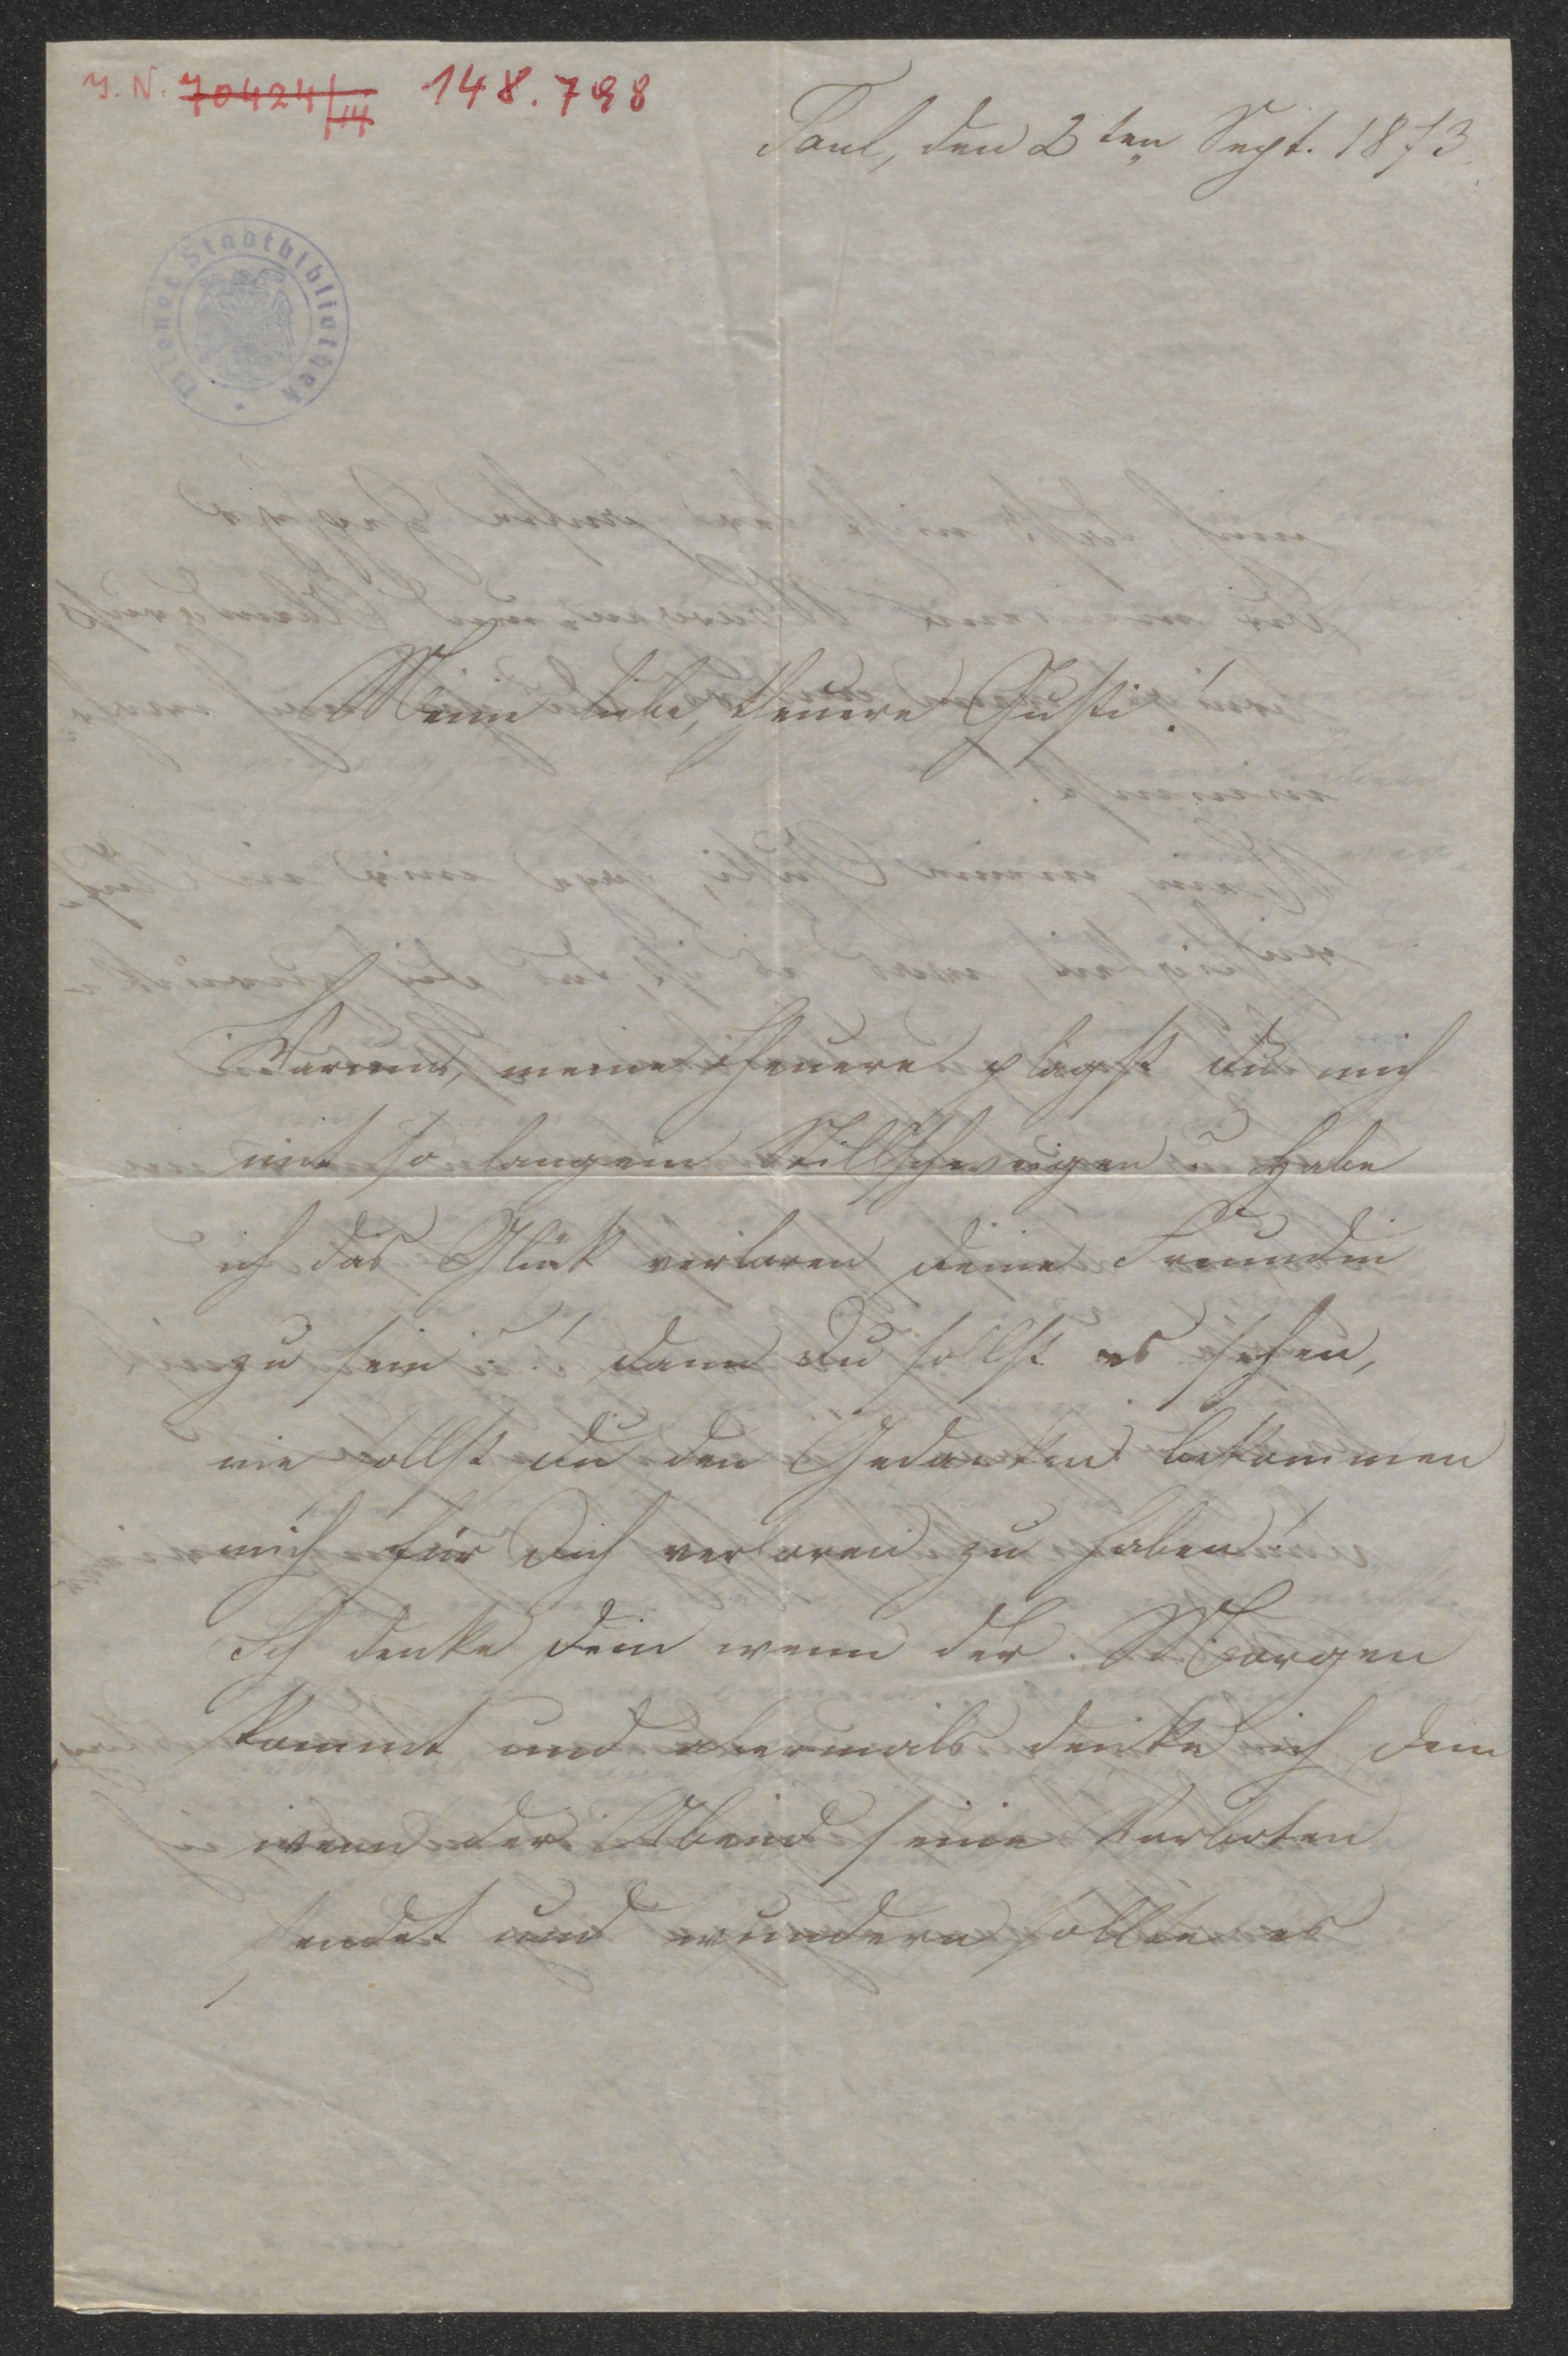 J. N. 70424/14 148.798
Paul, den 2ten Sept. 1873.
Wiener Stadtbibliothek
Meine liebe, theuere Gusti!
Warum, meine Theuere plagst du mich
mit so langem Stillschweigen? Habe
ich das Glük verloren deine Freundin
zu sein?! dann du sollst es sehen,
nie sollst du den Gedanken bekommen
mich für dich verloren zu haben!
Ich denke dein wenn der Morgen
kommt und abermals denke ich dein
wenn der Abend seine Vorboten
sendet und wundern sollte es